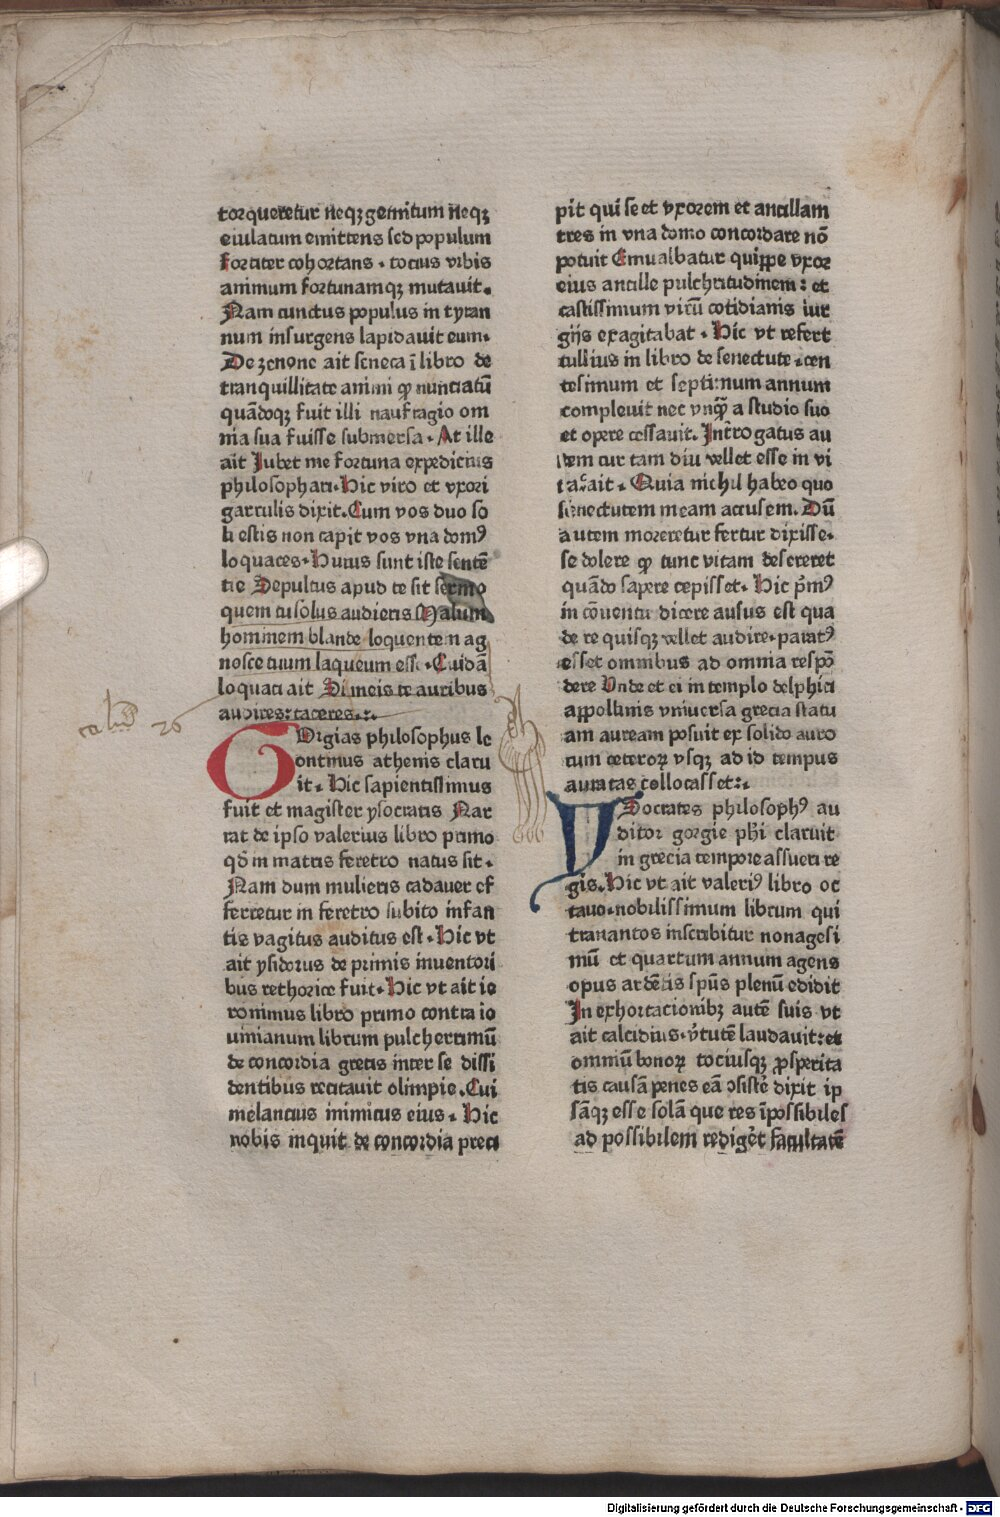 torqueretur neqꝫ gemitum neqꝫ
eiulatum emittens sed populum
fortiter cohortans . tocius vrbis
animum fortunamqꝫ mutauit.
Nam cunctus populus in tyran
num insurgens lapidauit eum.
De zenone ait seneca ī libro de
tranquillitate animi ꝙ nunciatū
quādoqꝫ fuit illi naufragio om
nia sua fuisse submersa . At ille
ait Iubet me fortuna expedicius
philosophari. Hic viro et vxori
garrulis dixit. Cum vos duo so
li estis non capit vos vna domꝰ
loquaces. Huius sunt iste sentē
tie Sepultus apud te sit sermo
quem tu solus audieris Malum
hominem blande loquentem ag
nosce tuum laqueum esse. Cuidā
loquaci ait Si meis te auribus
audires: taceres.:.
26
GOrgias philosophus le
ontinus athenis claru
it. Hic sapientissimus
fuit et magister ysocratis Nar
rat de ipso valerius libro primo
qđ in matris feretro natus sit.
Nam dum mulieris cadauer ef
ferretur in feretro subito infan
tis vagitus auditus est. Hic vt
ait ysidorus de primis inuentori
bus rethorice fuit. Hic vt ait ie
ronimus libro primo contra io
uinianum librum pulcherrimū
de concordia grecis inter se dissi
dentibus recitauit olimpie. Cui
melancius inimicus eius. Hic
nobis inquit de concordia preci
pit qui se et vxorem et ancillam
tres in vna domo concordare nō
potuit Emulabatur quippe vxor
eius ancille pulchritudinem: et
castissimum virū cotidianis iur
gijs exagitabat . Hic vt refert
tullius in libro de senectute . cen
tesimum et septimum annum
compleuit nec vnqꝫ̄ a studio suo
et opere cessauit. Introgatus au
tem cur tam diu vellet esse in vi
ta: ait. Quia nichil habeo quo
senectutem meam accusem. Dū
autem moreretur fertur dixisse.
se dolere ꝙ tunc vitam desereret
quādo sapere cepisset. Hic p̄mꝰ
in cōuentu dicere ausus est qua
de re quisqꝫ vellet audire. paratꝰ
esset omnibus ad omnia respō
dere Vnde et ei in templo delphici
appollinis vniuersa grecia statu
am auream posuit ex solido auro
cum ceteroꝝ vsqꝫ ad id tempus
auratas collocasset:.
YSocrates philosophꝰ au
ditor gorgie phi̅ claruit
in grecia tempore assueri re
gis. Hic vt ait valeriꝰ libro oc
tauo. nobilissimum librum qui
tranantos inscribitur nonagesi
mū et quartum annum agens
opus ardētis spūs plenū edidit
In exhortacionibꝫ autē suis vt
ait calcidius. v̓tutē laudauit: et
omniū bonoꝝ tociusqꝫ ꝓsperita
tis causā penes eā ↄsistē̓ dixit ip
sāqꝫ esse solā que res īpossibiles
ad possibilem rediget̓ facultatē